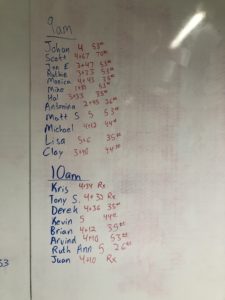 9am
Johan 4 53#
Scott 4+67 70#
Jon E 3+47 53#
Ruthie 3+23 53#
Monica 4+43 35#
Mike 53#
Hal 35#
Antonina 2+45 26#
Matt S 5 53#
Michael 4+12 44#
Lisa 5+6 35#
Clay 3+40 44#
10am
Kris 4+34 Rx
Tony S. 4+33 Rx
Derek 4+36 35#
Kevin 5 44#
Brian 4+12 35#
Arvind 4+40 53#
Ruth Ann 5 26#
Juan 4+40 Rx
53